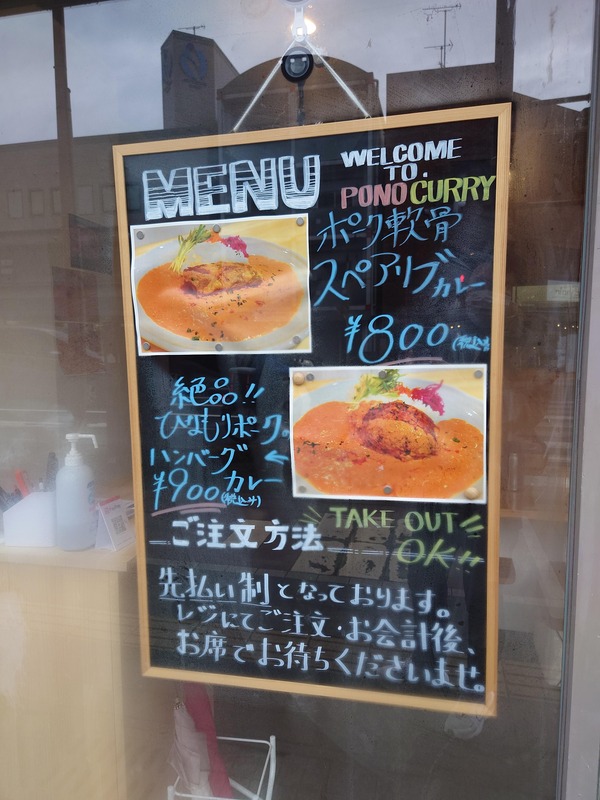 MENU
WELCOME
TO.
PONO CURRY
ポーク軟骨
スペアリブカレー
¥800(税込)
絶品!!
ひなもりポーク。
ハンバーグ
カレー
¥900(税込)
TAKE OUT
OK!!
ご注文方法
先払い制となっております。
レジにてご注文・お会計後、
お席でお待ちくださいませ。